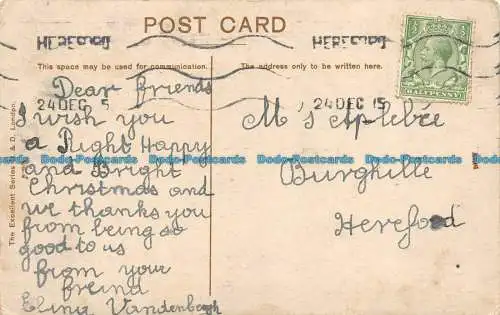 POST CARD
HEREFORD HEREFORD
This space may be used for communication. The address only to be written here.
24 DEC 15 24 DEC 15
HALFPENNY
The Excellent Series
London.
Dear friends
I wish you
a Right Happy
and Bright
Christmas and
we thanks you
from being so
good to us
from your
freind
Elina Vandenbergh
M s Aplebée
Burghille
Hereford
Dodo-Postcards Dodo-Postcards Dodo-Postcards Dodo-Postcards Dodo-Postcards